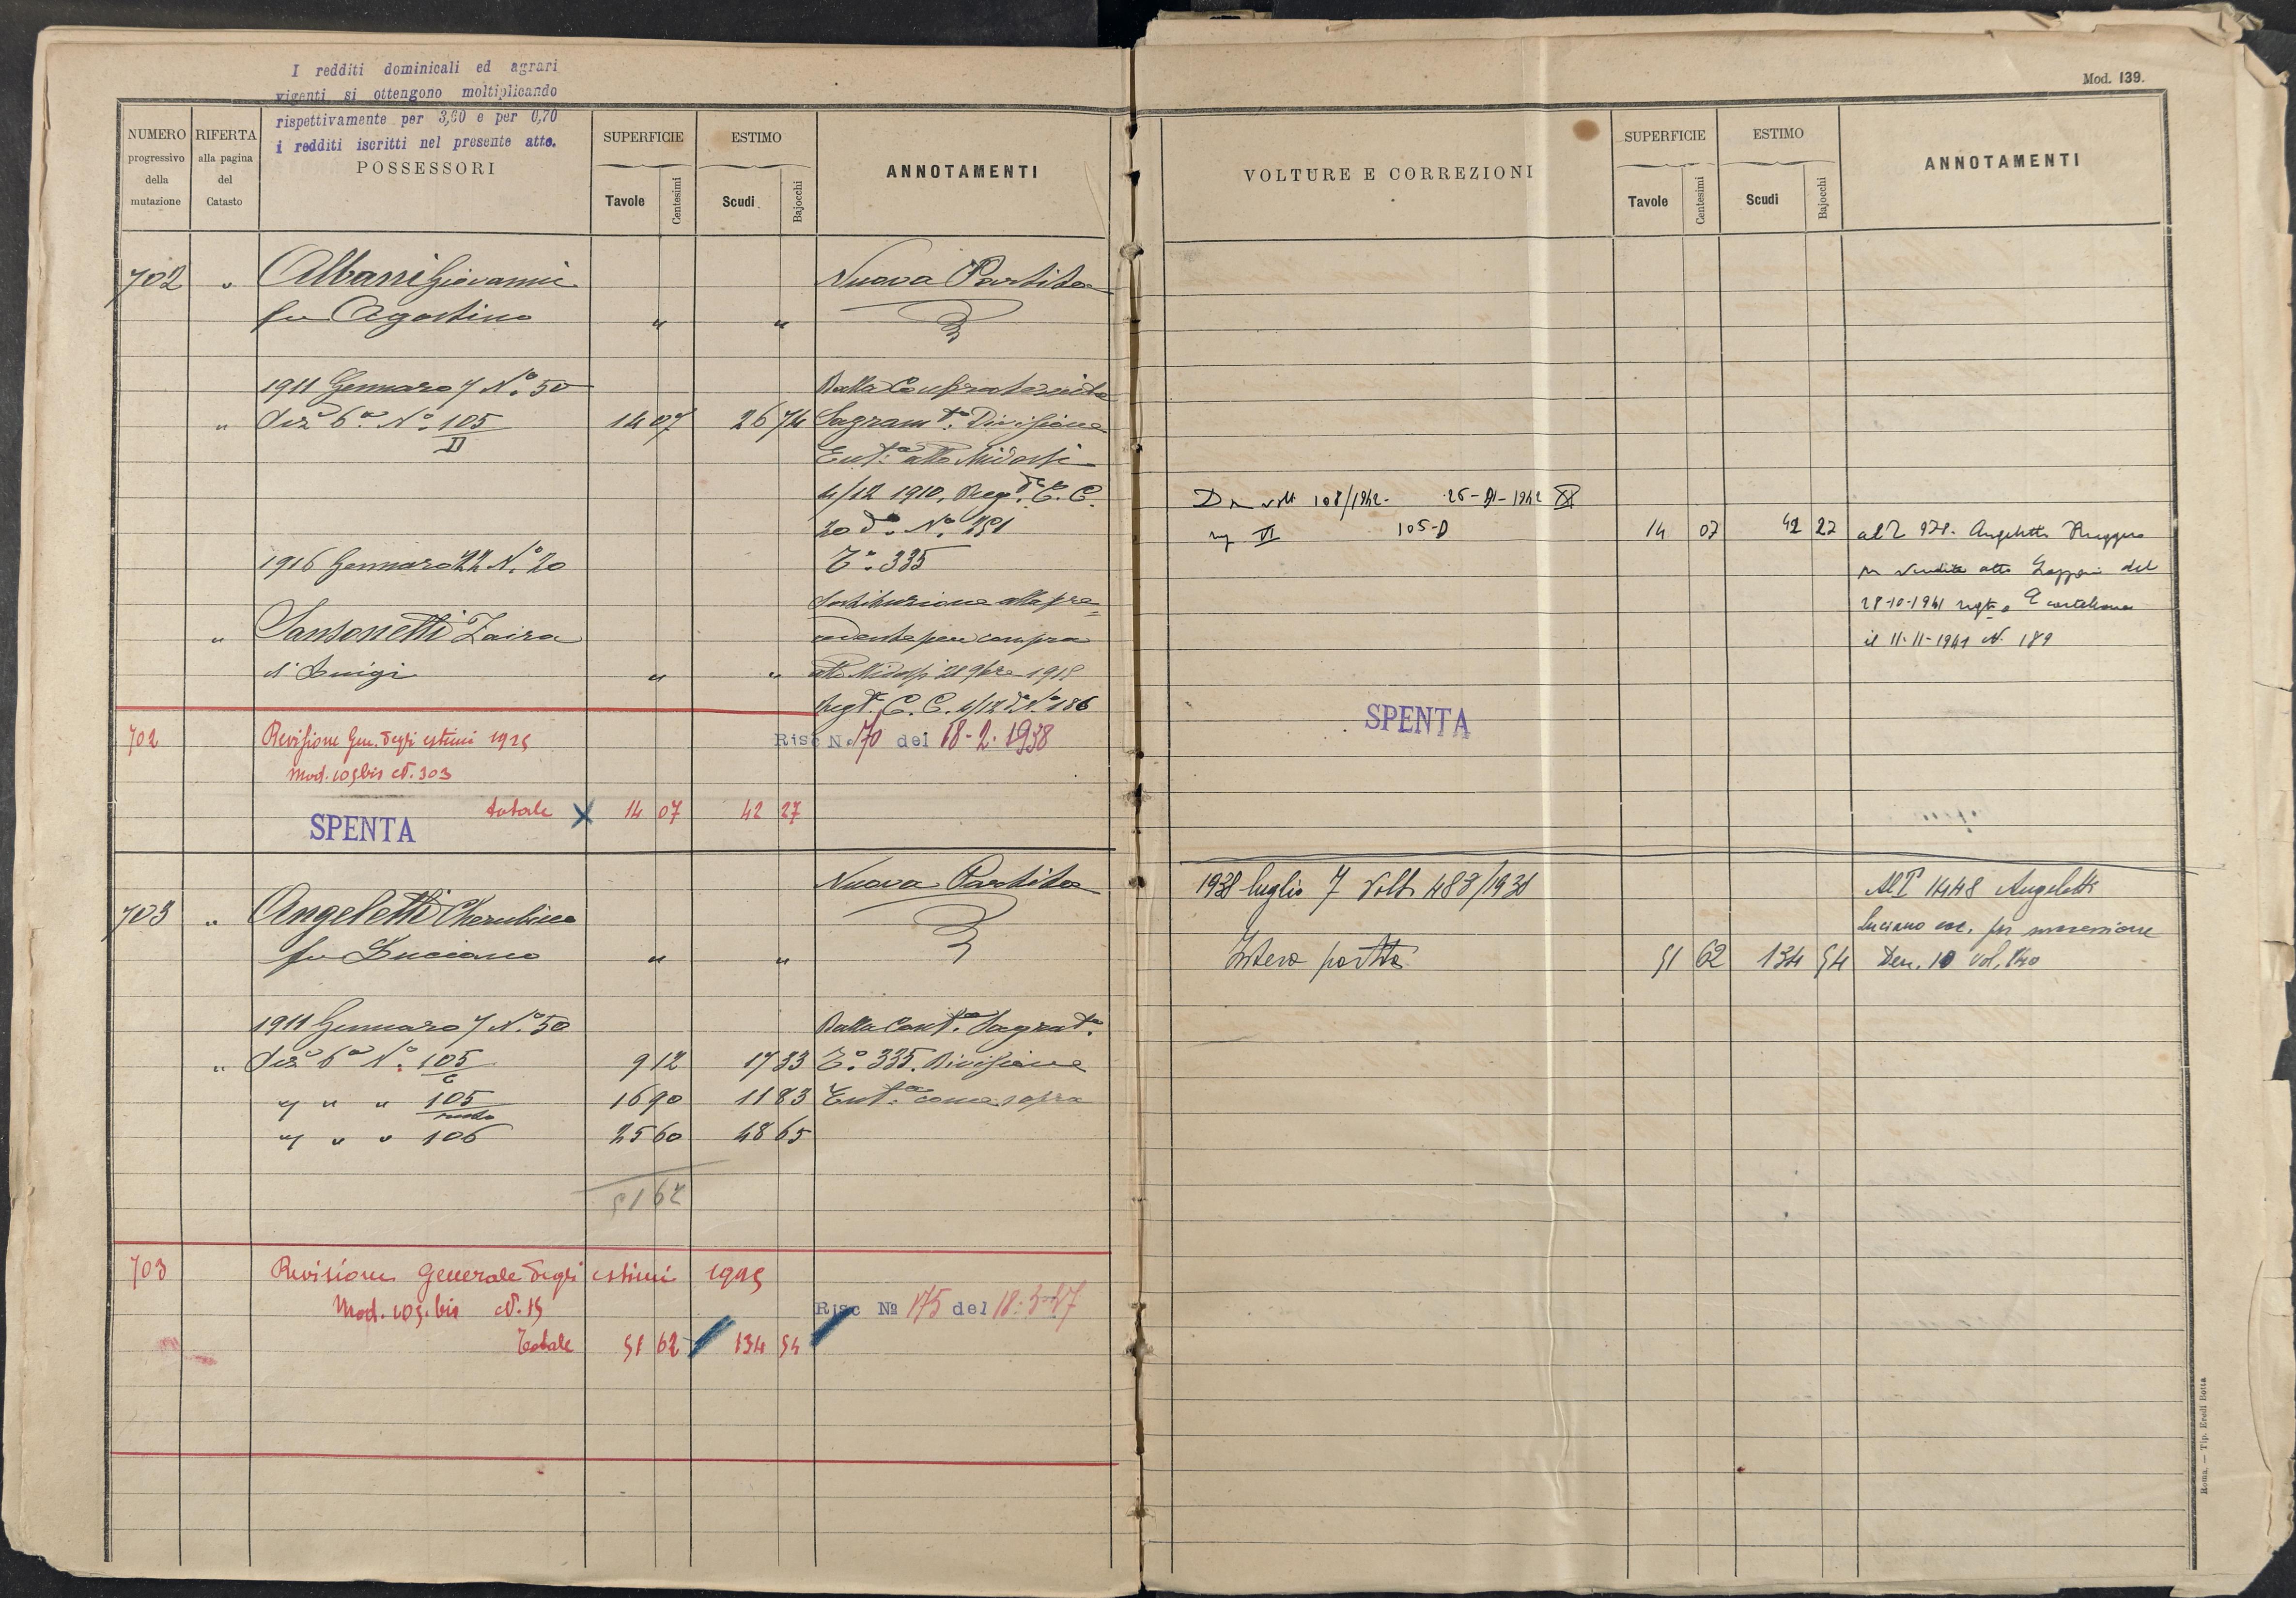 I redditi dominicali ed agrari
vigenti si ottengono moltiplicando
rispettivamente per 3,60 e per 0,70
i redditi iscritti nel presente atto.
NUMERO progressivo della mutazione
RIFERTA alla pagina del Catasto
POSSESSORI
SUPERFICIE
Tavole Centesimi
ESTIMO
Scudi Bajocchi
ANNOTAMENTI
702 " Albani Giovanni Nuova Partita
fu Agostino " "
1911 Gennaro 7 N.° 50 Dalla Confraternita
" Sez.e 6a N.° 105/D 14 07 26 74 Sagramta. Divisione
Entca. atto Midossi
4/12 1910, Regto. C. C.
20 do. N.° 251
1916 Gennaro 22 N.° 20 To. 335
Sostituzione alla pre=
" Sansonetti Zaira cedente per compra
di Luigi " " atto Midossi 28 9bre 1915
Regto. C. C. 4/12 do. N.° 186
702 Revisione Gen. degli estimi 1925 Risc N. 170 del 18-2-1938
Mod. 105 bis N. 303
totale X 14 07 42 27
SPENTA
Nuova Partita
703 " Angeletti Cherubino
fu Luciano " "
1911 Gennaro 7 N.° 50 Dalla Conta. Sagramta.
" Sez.e 6a N.° 105/C 9 12 17 33 To. 335. Divisione
" " " 105/resto 16 90 11 83 Entca. come sopra
" " " 106 25 60 48 65
51 62
703 Revisione Generale degli estimi 1925
Mod. 105. bis N. 15 Risc No 175 del
Totale 51 62 134 54
Mod. 139.
VOLTURE E CORREZIONI
SUPERFICIE
Tavole Centesimi
ESTIMO
Scudi Bajocchi
ANNOTAMENTI
Da volt 108/1942- 26-XI-1942 XX
VI 105-D 14 07 42 27 al 978. Angeletti Ruggero
per vendita atto del
28-10-1941
il 11-11-1941 N. 189
SPENTA
1938 luglio 7 Volt. 483/1938 Al P 1448 Angeletti
Luciano ecc. per successione
Intera partita 51 62 134 54 Den. 10 vol. 140
Roma. — Tip. Eredi Botta